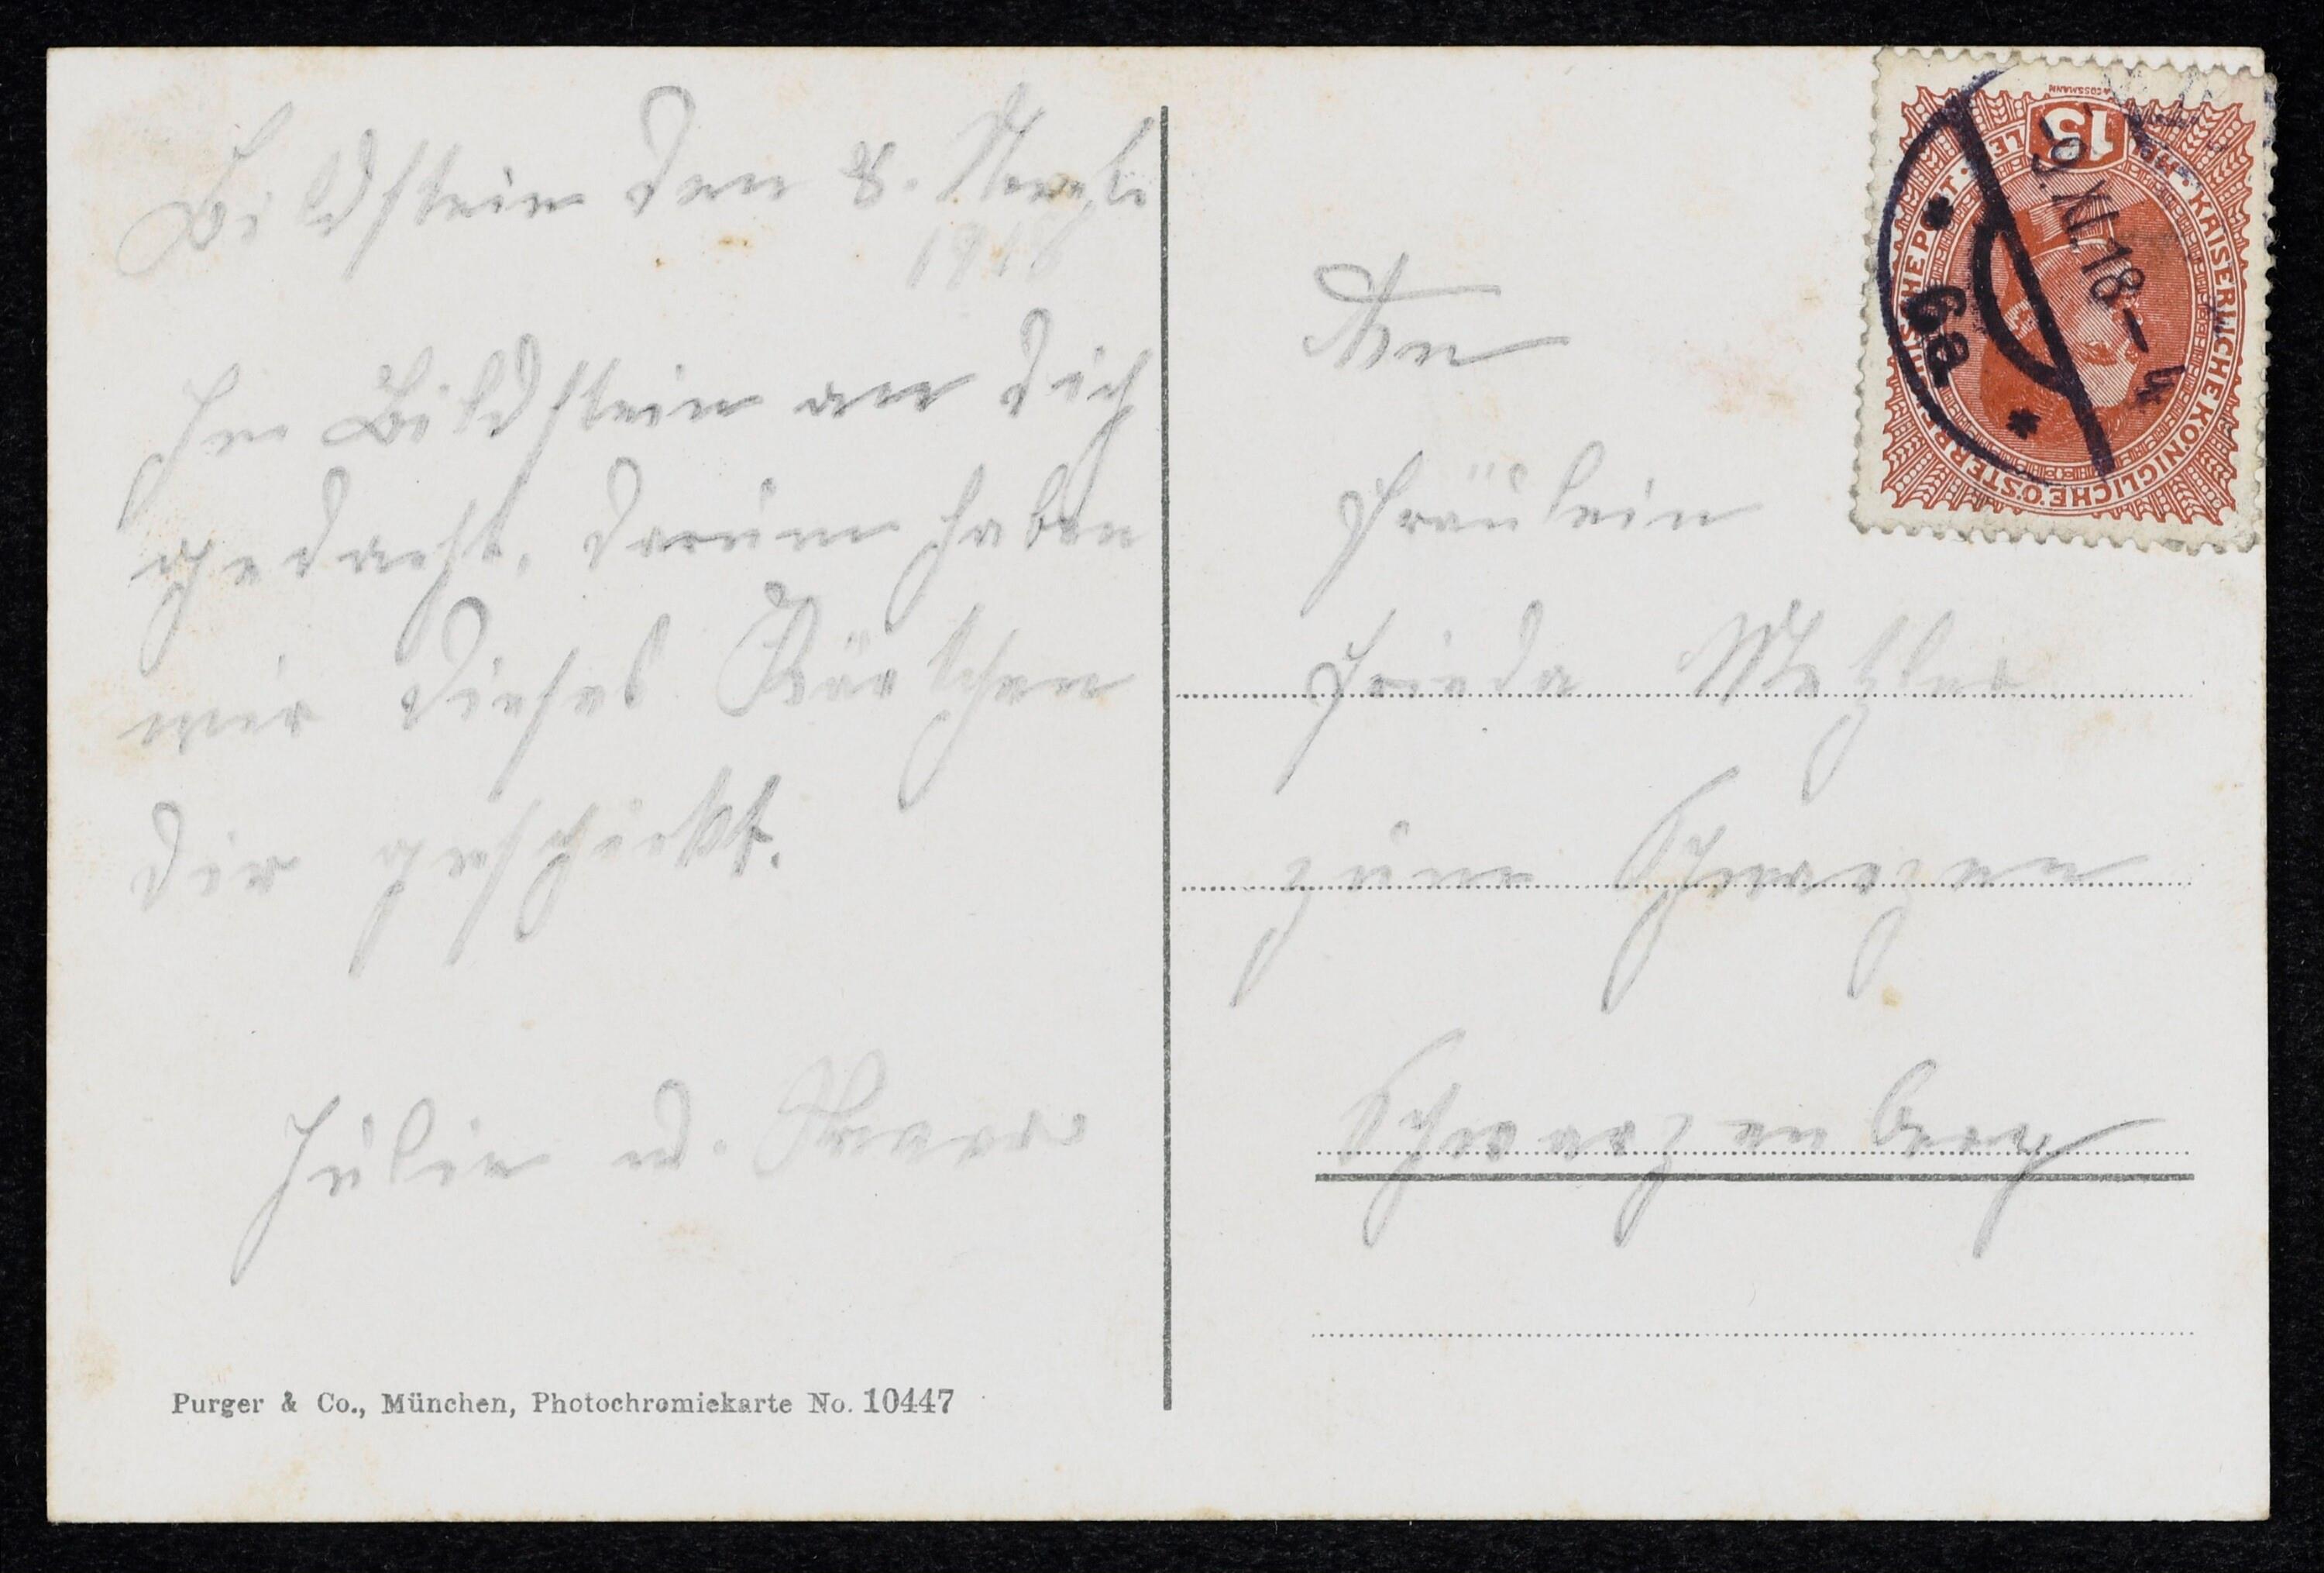 Bildstein den 8. 
1918
In Bildstein an dich
gedacht, darum haben
wir dieses Kärtchen
dir geschickt.
Julie u.
Purger & Co., München, Photochromiekarte No. 10447
An
Fräulein
Frieda Metzler
zum Schwarzen
Schwarzenberg
KAISERLICHE KÖNIGLICHE ÖSTERREICHISCHE POST
15
9. XI. 18 - 4
6a